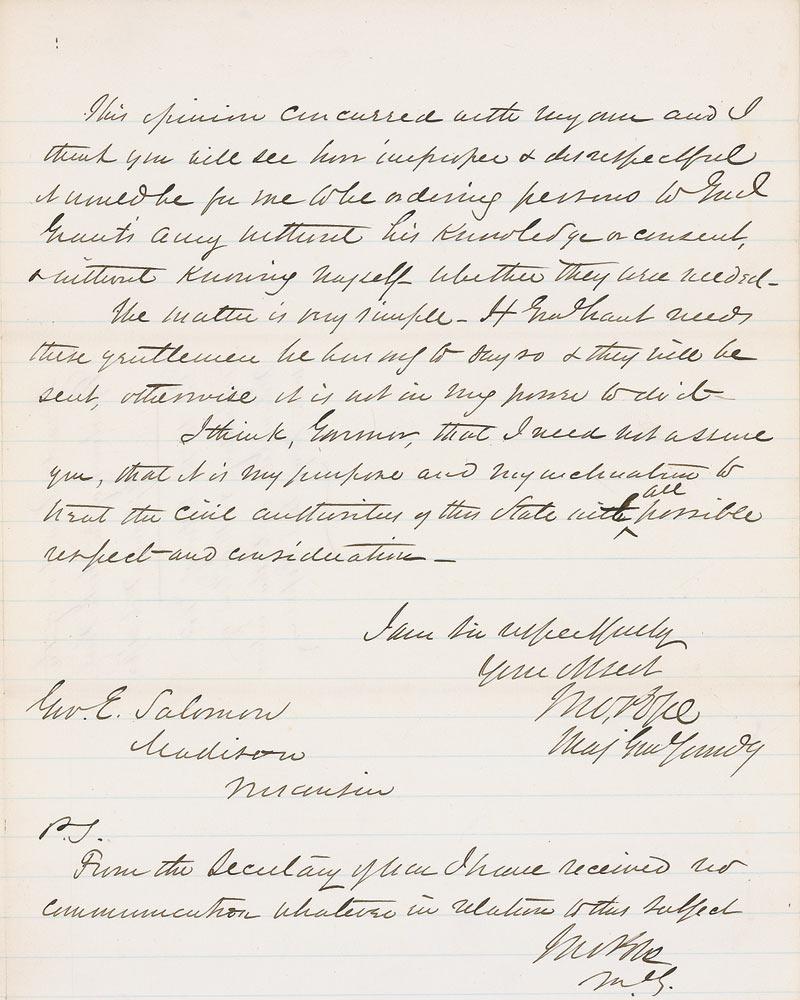 This opinion concurred with my own and I
think you will see how improper & disrespectful
it would be for me to be ordering persons to Genl
Grant's army without his knowledge or consent,
& without knowing myself whether they are needed -
The matter is very simple - If Genl Grant needs
these gentlemen he has only to say so & they will be
sent, otherwise it is not in my power to do it -
I think, Governor, that I need not assure
you, that it is my purpose and my inclination to
treat the civil authorities of this State with all possible
respect and consideration -
I am Sir respectfully
Your obt Svt
Jno. Pope
Maj Genl Comdg
Gov. E. Salomon
Madison
Wisconsin
P.S.
From the Secretary of War I have received no
communication whatever in relation to this subject
Jno Pope
M.G.